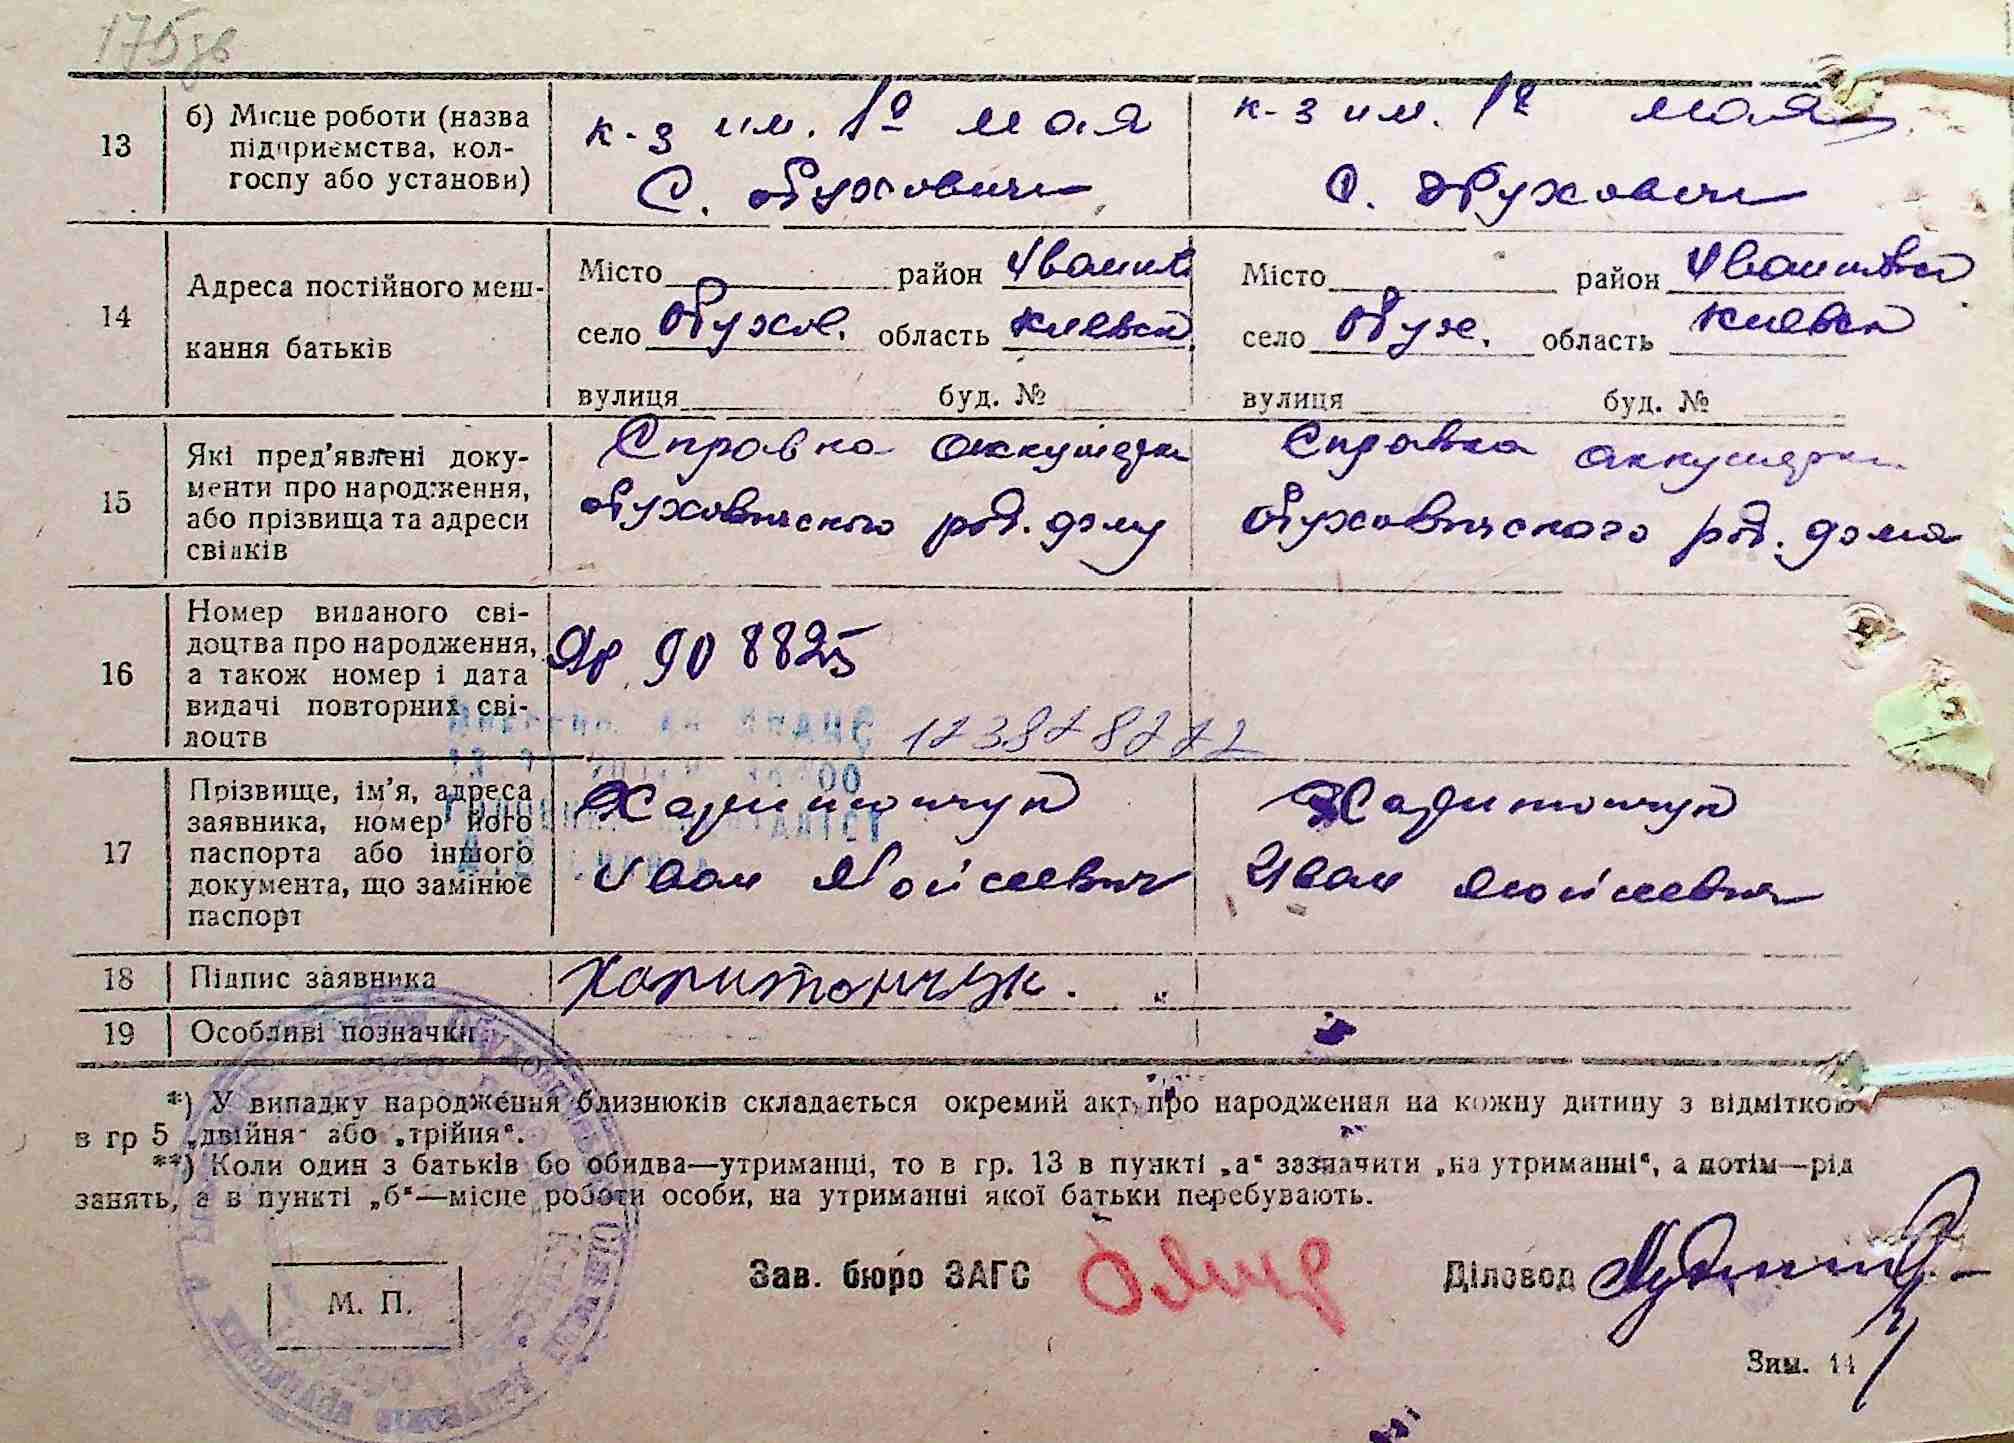 175зв
13
б) Місце роботи (назва
підприємства, кол-
госпу або установи)
к-з им. 1º мая
С. Обуховичи
к-з им. 1º мая
С. Обуховичи
14
Адреса постійного меш-
кання батьків
Місто район Иванк.
село Обухов. область Киевск
вулиця буд. №
Місто район Иванковск
село Обух. область Киевск
вулиця буд. №
15
Які пред'явлені доку-
менти про народження,
або прізвища та адреси
свідків
Справка аккушерки
Обуховичского род. дому
Справка аккушерки
Обуховичского род. дома
16
Номер виданого сві-
доцтва про народження,
а також номер і дата
видачі повторних сві-
доцтв
908825
17
Прізвище, ім'я, адреса
заявника, номер його
паспорта або іншого
документа, що замінює
паспорт
Харитончук
Иван Мойсеевич
Харитончук
Иван Мойсеевич
18
Підпис заявника
Харитончук.
19
Особливі позначки
*) У випадку народження близнюків складається окремий акт про народження на кожну дитину з відміткою
в гр 5 „двійня“ або „трійня“.
**) Коли один з батьків бо обидва—утриманці, то в гр. 13 в пункті „а“ зазначити „на утриманні“, а потім—рід
занять, а в пункті „б“—місце роботи особи, на утриманні якої батьки перебувають.
М. П.
Зав. бюро ЗАГС
Діловод
Зим. 14